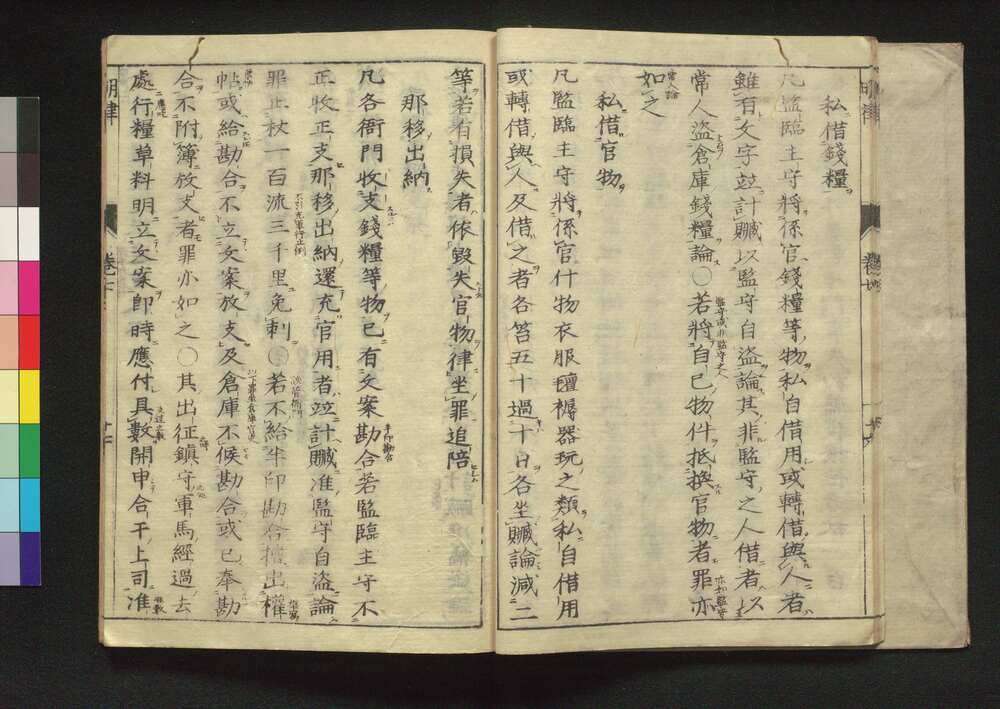 私借錢糧
凡監臨主守將係官錢糧等物私自借用或轉借與人者
雖有文字竝計贓以監守自盜論其非監守之人借者以
常人盜倉庫錢糧論〇若將自己物件抵換官物者罪亦
如之
私借官物
凡監臨主守將係官什物衣服氊褥器玩之類私自借用
或轉借與人及借之者各笞五十過十日各坐贓論減二
等若有損失者依毀失官物律坐罪追陪
那移出納
凡各衙門收支錢糧等物已有文案勘合若監臨主守不
正收正支那移出納還充官用者竝計贓准監守自盜論
罪止杖一百流三千里免刺〇若不給半印勘合擅出權
帖或給勘合不立文案放支及倉庫不候勘合或已奉勘
合不附簿放支者罪亦如之〇其出征鎮守軍馬經過去
處行糧草料明立文案即時應付具數開申合干上司准
明律
卷七